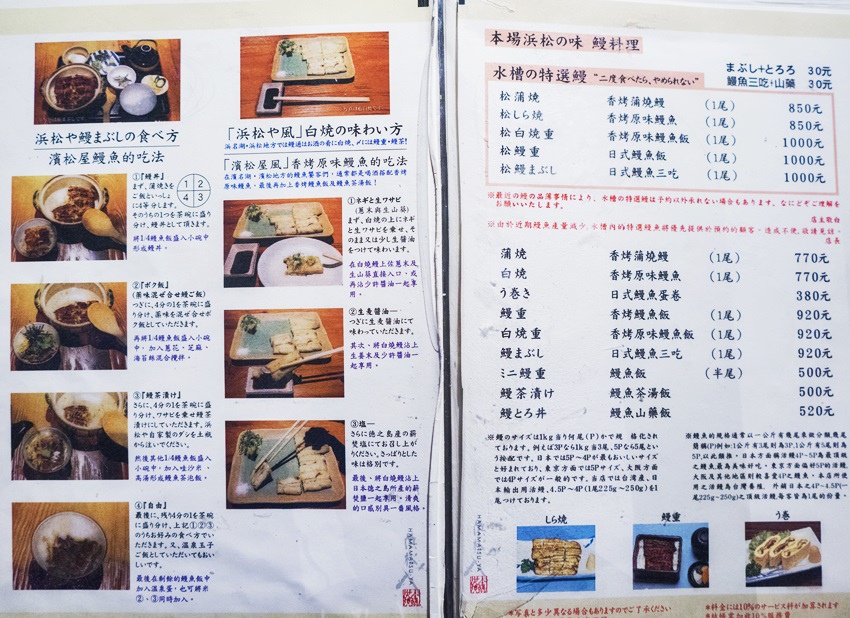 浜松や鰻まぶしの食べ方
濱松屋鰻魚的吃法
①『鰻丼』
まず、蒲焼きを
ご飯といっしょ
に4等分します。
そのうちの1つを茶碗に盛
り分け、鰻丼として頂きます。
將1/4鰻魚飯盛入小碗中
形成鰻丼。
1 2
4 3
②『ボク飯』
(薬味混ぜ合せ鰻ご飯)
つぎに、4分の1を茶碗に盛
り分け、薬味を混ぜ合せボ
ク飯としていただきます。
再將1/4鰻魚飯盛入小碗
中、加入蔥花、芝麻、
海苔絲混合攪拌。
③『鰻茶漬け』
さらに、4分の1を茶碗に盛
り分け、ワサビを乗せ鰻茶
漬けにしていただきます。浜
松や自家製のダシを土瓶
から注いでください。
然後其他1/4鰻魚飯盛入
小碗中、加入哇沙米、
高湯形成鰻魚茶泡飯。
④『自由』
最後に、残り4分の1を茶碗
に盛り分け、上記①②③
のうちお好みの食べ方でい
ただきます。又、温泉玉子
ご飯としていただいてもおい
しいです。
最後在剩餘的鰻魚飯中
加入溫泉蛋，也可將米
②、③同時加入。
「浜松や風」白焼の味わい方
浜名湖・浜松地方では鰻通はお酒の肴に白焼、〆には鰻重・鰻茶!
「濱松屋風」香烤原味鰻魚的吃法
在濱名湖・濱松地方的鰻魚饕客們，通常都是喝酒搭配香烤
原味鰻魚，最後再加上香烤鰻魚飯及鰻魚茶湯飯!
①ネギと生ワサビ
(蔥末與生山葵)
まず、白焼の上にネギ
と生ワサビを乗せ、そ
のまま又は少し生醤油
をつけて味わいます。
在白燒鰻上佐蔥末及
生山葵直接入口，或
再沾少許醬油一起享
用。
②生姜醤油—
つぎに生姜醤油にて
味わっていただきます。
其次、將白燒鰻沾上
生姜末及少許醬油一
起享用。
③塩—
さらに徳之島産の薪
焚塩にてお召し上が
りください。さっぱりした
味は格別です。
最後，將白燒鰻沾上
日本德之島所産的薪
焚鹽一起享用，清爽
的口感別具一番風格。
HAMAMATSU-YA
本場浜松の味 鰻料理
水槽の特選鰻 "二度食べたら、やめられない"
まぶし+とろろ 30元
鰻魚三吃+山藥 30元
松蒲焼 香烤蒲燒鰻 (1尾) 850元
松しら焼 香烤原味鰻魚 (1尾) 850元
松白焼重 香烤原味鰻魚飯 (1尾) 1000元
松鰻重 日式鰻魚飯 (1尾) 1000元
松鰻まぶし 日式鰻魚三吃 (1尾) 1000元
※最近の鰻の品薄事情により、水槽の特選鰻は予約以外承れない場合もあります。なにとぞご理解を
お願いいたします。
店主敬白
※由於近期鰻魚産量減少，水槽內的特選鰻魚將優先提供於預約的顧客，造成不便，敬請見諒。
店長
蒲焼 香烤蒲燒鰻 (1尾) 770元
白焼 香烤原味鰻魚 (1尾) 770元
う巻き 日式鰻魚蛋卷 380元
鰻重 香烤鰻魚飯 (1尾) 920元
白焼重 香烤原味鰻魚飯 (1尾) 920元
鰻まぶし 日式鰻魚三吃 (1尾) 920元
ミニ鰻重 鰻魚飯 (半尾) 500元
鰻茶漬け 鰻魚茶湯飯 500元
鰻とろ丼 鰻魚山藥飯 520元
※鰻のサイズは1kg当り何尾(P)かで規格化され
ております。例えば3Pなら1kg当3尾、5Pなら5尾とい
う按配です。日本では5P～4Pが最もおいしいサイズ
と好まれており、東京方面では5Pサイズ、大阪方面
では4Pサイズが一般的です。当店では台湾産、日
本輸出用活鰻、4.5P～4P(1尾225g～250g)を1
尾つけております。
※鰻魚的規格通常以一公斤有幾尾來做分類幾尾
簡稱(P)例如:1公斤有3尾則為3P,1公斤有5尾則為
5P,以此類推，日本方面稱活鰻4P～5P為最頂級
之鰻魚最為美味好吃。東京方面偏好5P的活鰻，
大阪及其他地區則較喜愛4P之鰻魚。本店所使
用之活鰻為台灣養殖，外銷日本之4P～4.5P(一
尾225g～250g)之頂級活鰻每客皆為1尾的份量。
しら焼 鰻重 う巻
*写真と多少異なる場合もありますのでご了承ください
*料金には10%のサービス料が加算されます